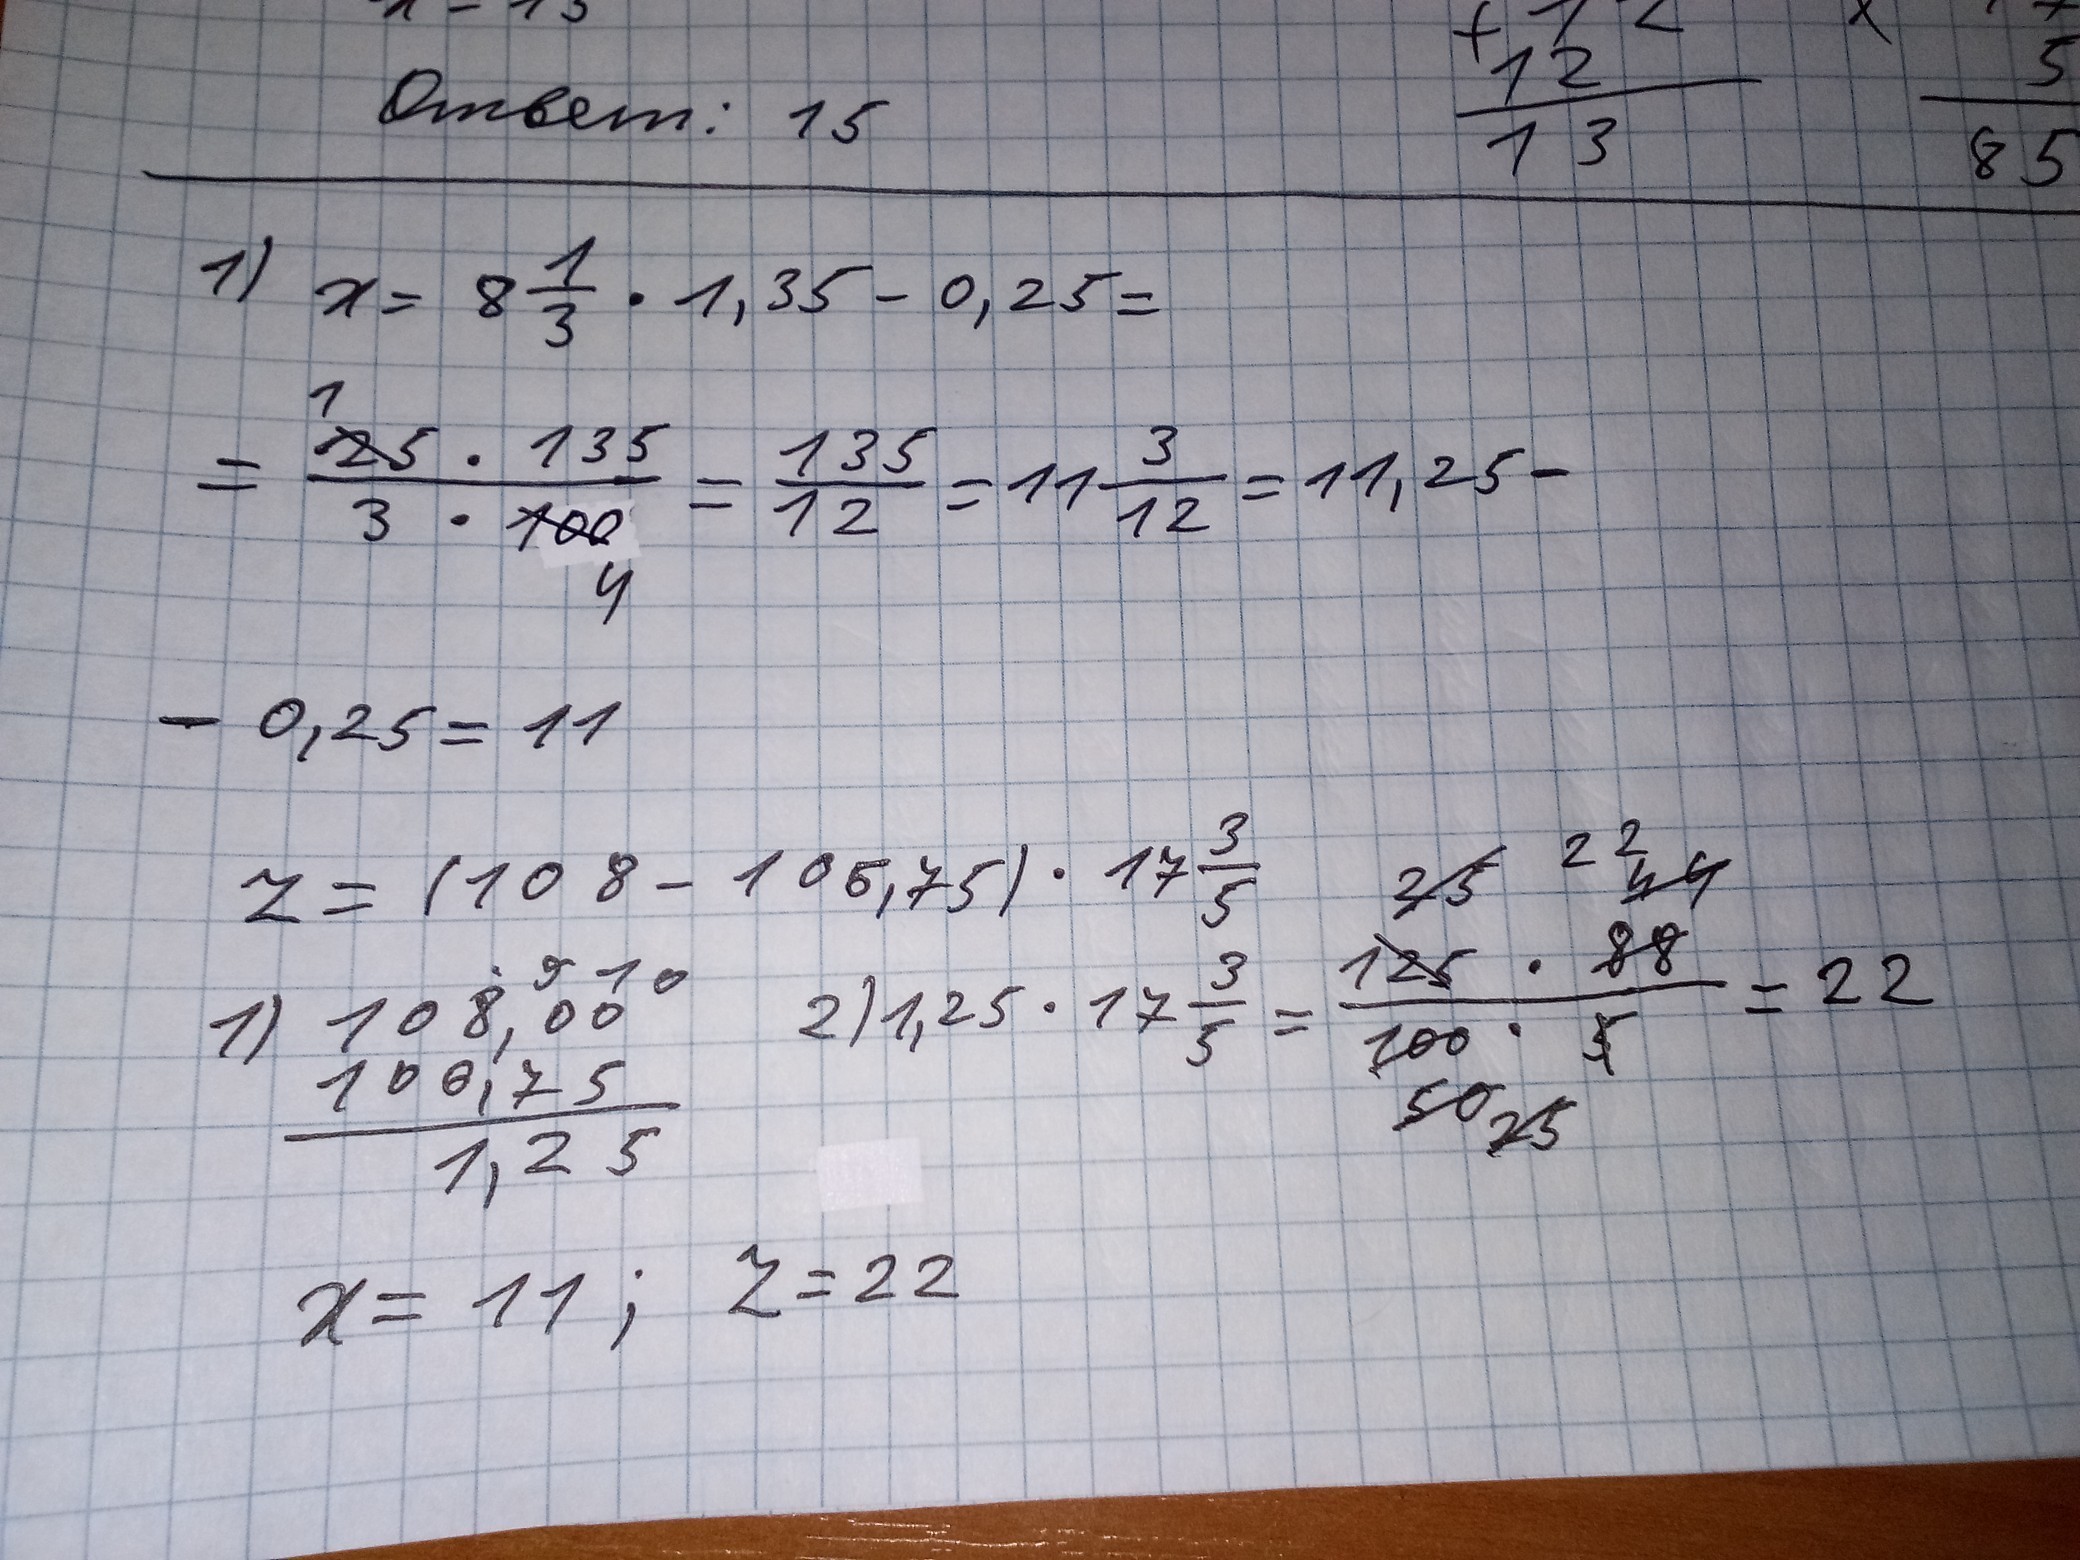 x = 15
Ответ: 15
+ 12
12
13
x 17
5
85
1) x = 8 1/3 · 1,35 - 0,25 =
1
= 25 · 135 / 3 · 100 = 135/12 = 11 3/12 = 11,25 -
4
- 0,25 = 11
z = (108 - 106,75) · 17 3/5
25 22 44
1) 108,00
9 10
106,75
1,25
2) 1,25 · 17 3/5 = 125 · 88 / 100 · 5 = 22
50 25
x = 11 ; z = 22